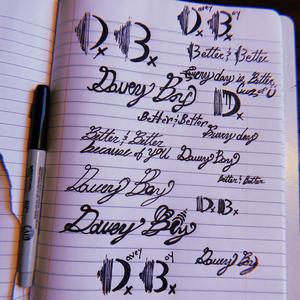 D. B.x
Davey Boy x
Better & Better
Everyday is Better
because of U
Davey Boy
D x
Better & Better
Everyday
Better & Better
because of you
Davey Boy
Better & Better
Davey Boy
D. B. x
Davey Boy
Davey Boy
Davey x Boy x